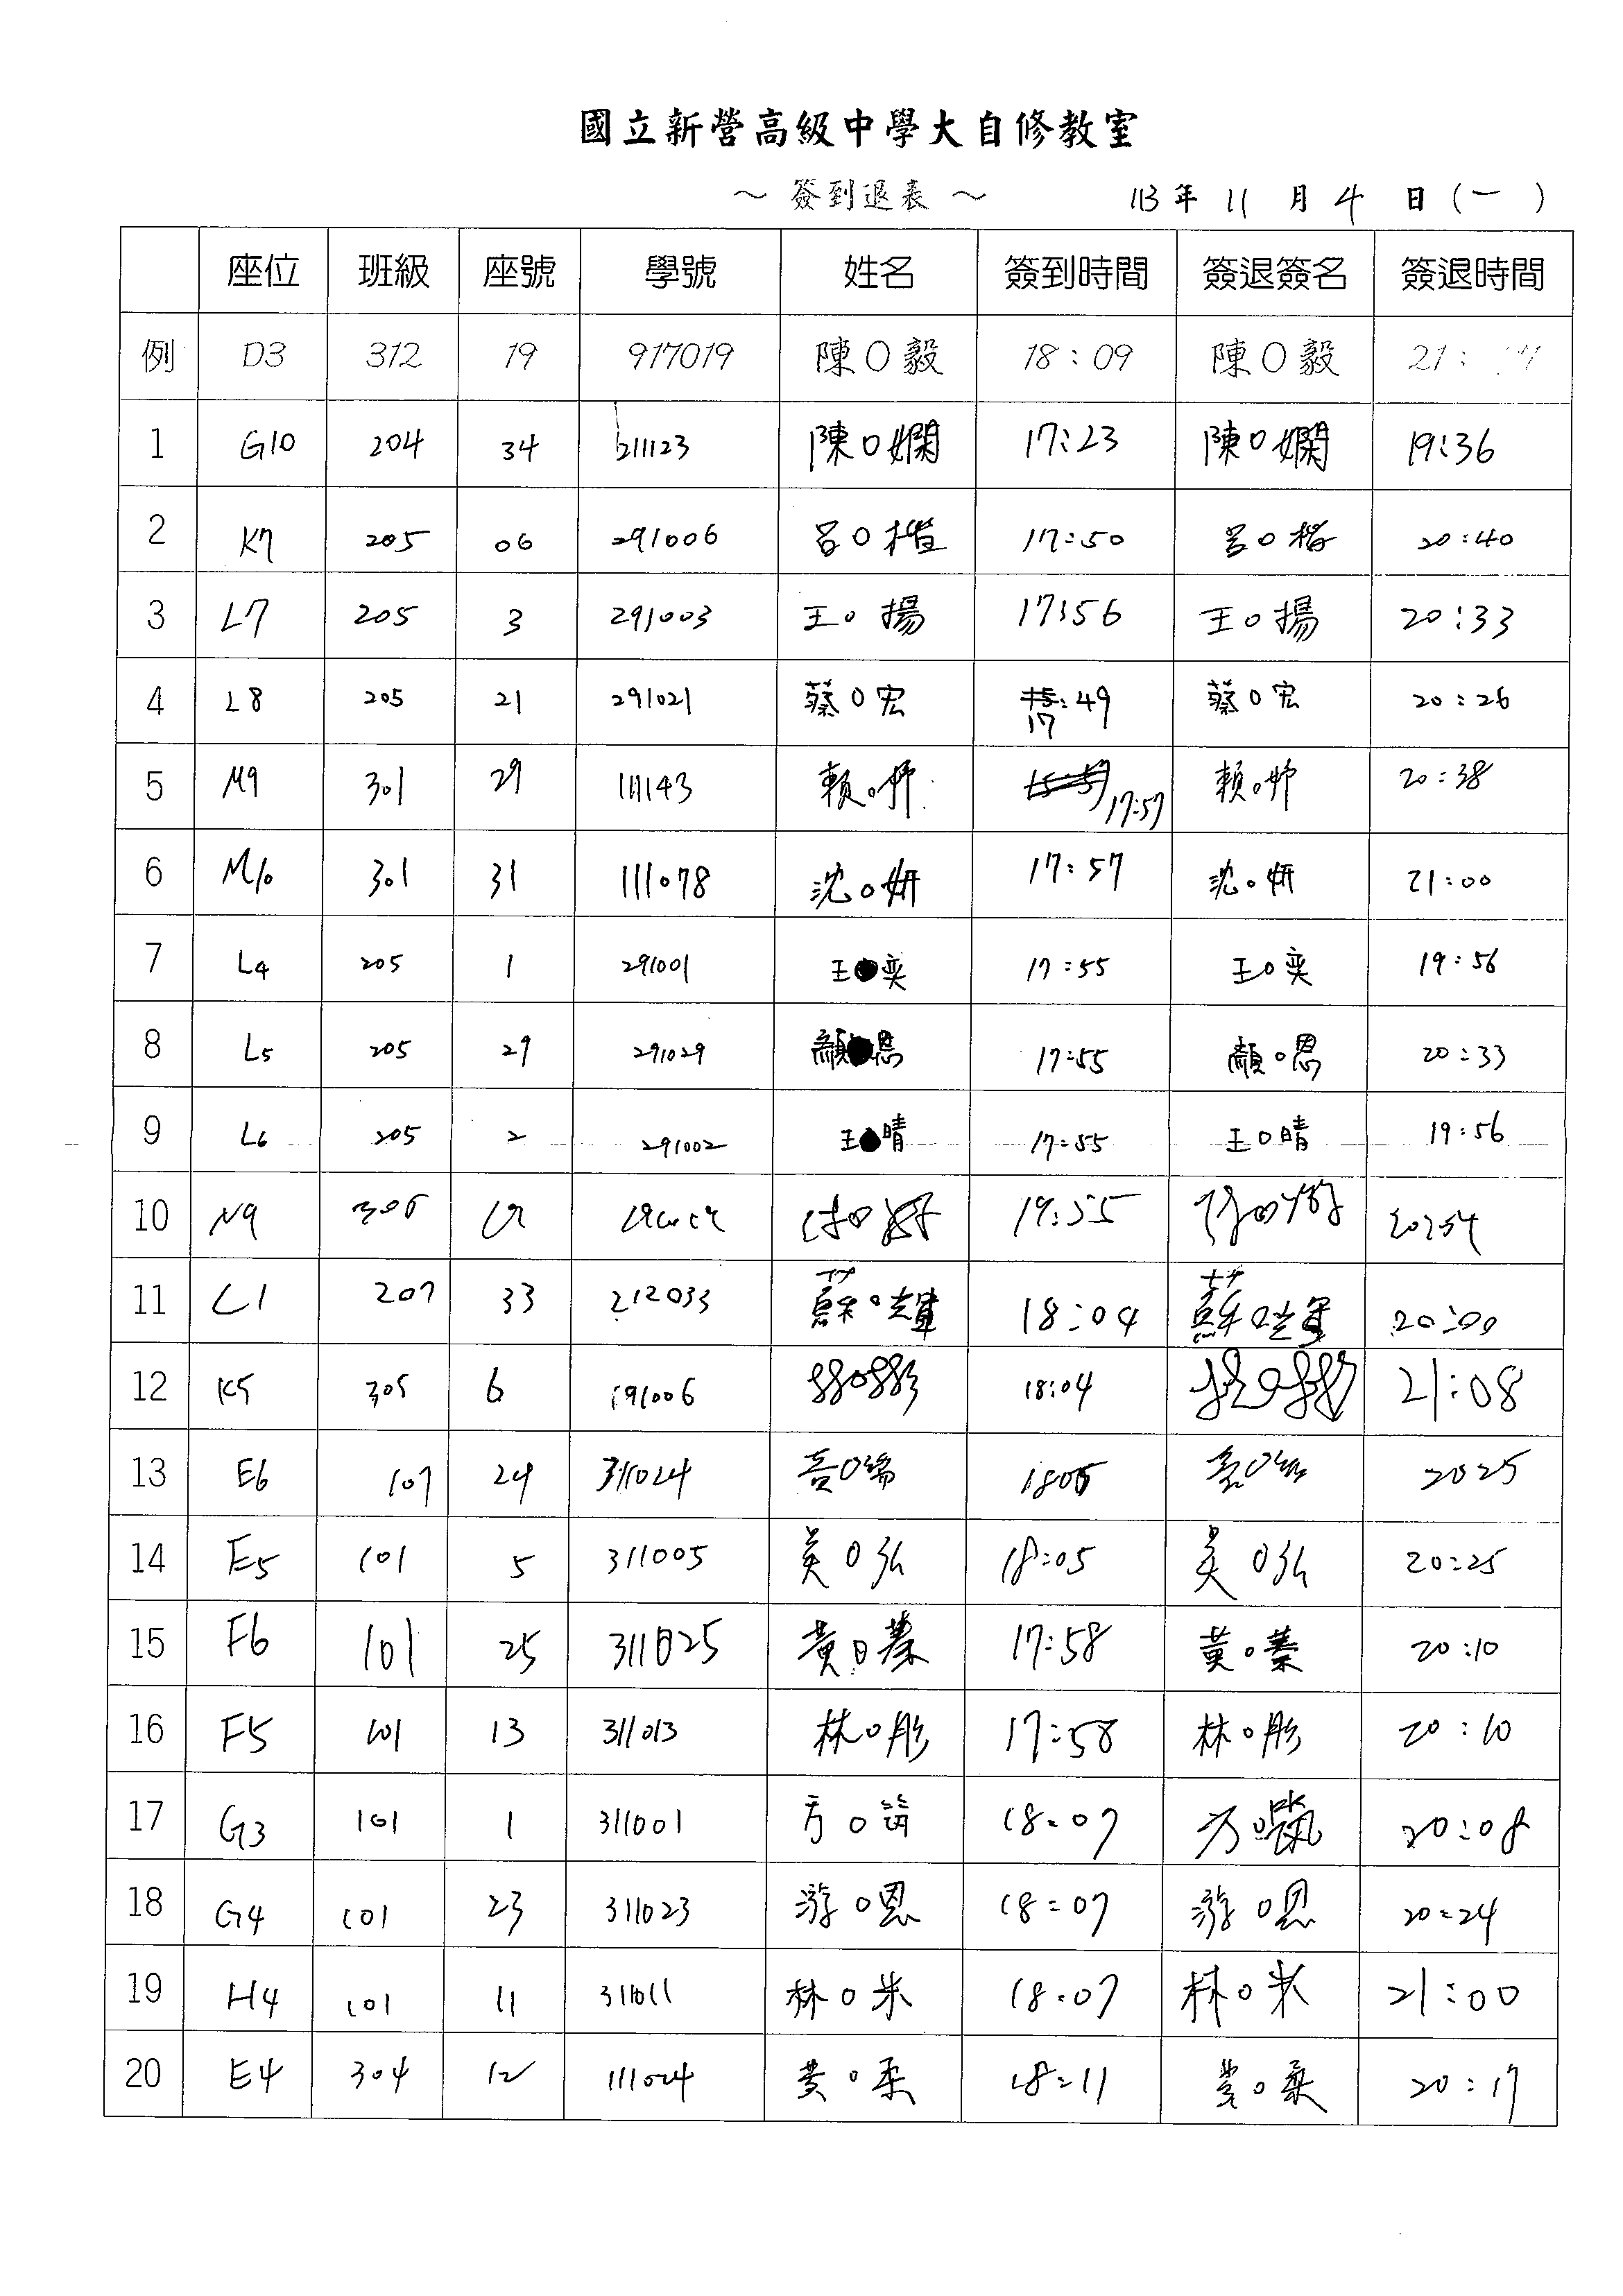 國立新營高級中學大自修教室
～ 簽到退表 ～ 113 年 11 月 4 日 (一)
座位 班級 座號 學號 姓名 簽到時間 簽退簽名 簽退時間
例 D3 312 19 917019 陳O毅 18:09 陳O毅 21:
1 G10 204 34 211123 陳O嫻 17:23 陳O嫻 19:36
2 K7 205 06 291006 呂O楷 17:50 呂O楷 20:40
3 L7 205 3 291003 王O揚 17:56 王O揚 20:33
4 L8 205 21 291021 蔡O宏 17:49 蔡O宏 20:26
5 M9 301 29 111143 賴O妤 17:57 賴O妤 20:38
6 M10 301 31 111078 沈O妍 17:57 沈O妍 21:00
7 L4 205 1 291001 王 奕 17:55 王O奕 19:56
8 L5 205 29 291029 顏 恩 17:55 顏O恩 20:33
9 L6 205 2 291002 王 晴 17:55 王O晴 19:56
10 N9 306 19:55 20:54
11 L1 207 33 212033 蘇O輝 18:04 蘇O 20:00
12 K5 305 6 191006 18:04 21:08
13 E6 101 24 311024 1805 2025
14 E5 101 5 311005 吳O弘 18:05 吳O弘 20:25
15 F6 101 25 311025 黃O蓁 17:58 黃O蓁 20:10
16 F5 101 13 311013 林O彤 17:58 林O彤 20:10
17 G3 101 1 311001 方O 18:07 方O 20:08
18 G4 101 23 311023 游O恩 18:07 游O恩 20:24
19 H4 101 11 311011 林O米 18:07 林O米 21:00
20 E4 304 12 111024 黃O柔 18:11 黃O柔 20:17